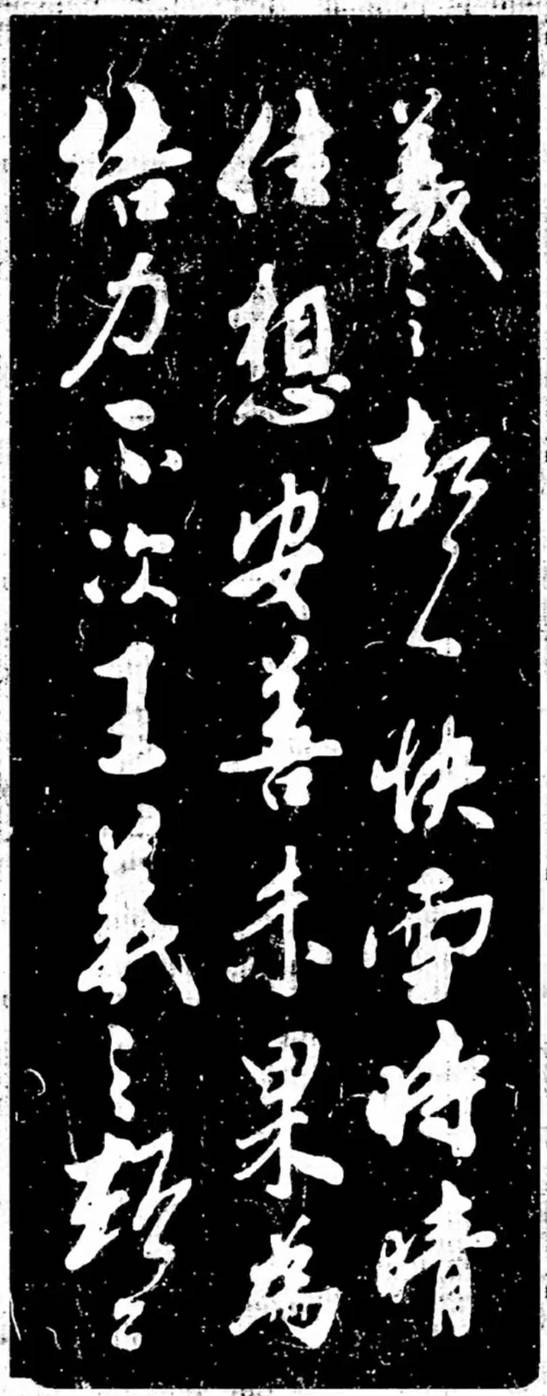 羲之頓首快雪時晴
佳想安善未果為
結力不次王羲之頓首